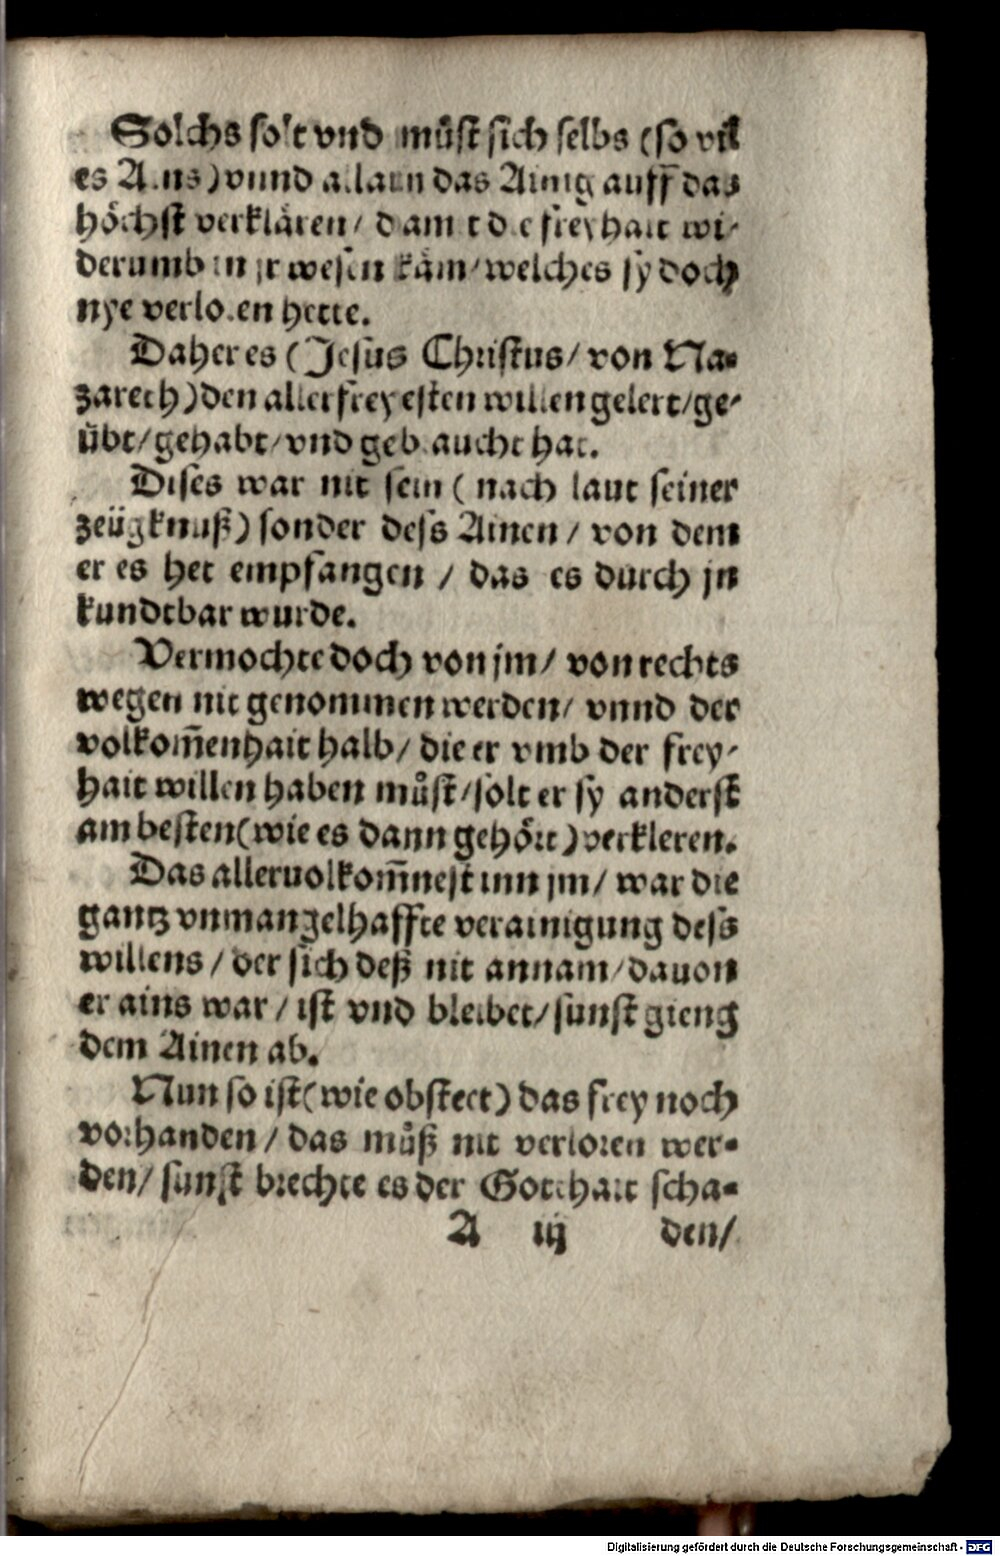 Solchs solt vnd můst sich selbs (so vil
es Ains) vnnd allain das Ainig auff das
höchst verklären / damit die freyhait wi-
derumb in jr wesen käm / welches sy doch
nye verloren hette.
Daher es (Jesus Christus / von Na-
zareth) den allerfreyesten willen gelert / ge-
übt / gehabt / vnd gebraucht hat.
Dises war nit sein (nach laut seiner
zeügknuß) sonder dess Ainen / von dem
er es het empfangen / das es durch jn
kundtbar wurde.
Vermochte doch von jm / von rechts
wegen nit genommen werden / vnnd der
volkom̄enhait halb / die er vmb der frey-
hait willen haben můst / solt er sy anderst
am besten (wie es dann gehört) verkleren.
Das alleruolkom̄nest inn jm / war die
gantz vnmangelhaffte verainigung dess
willens / der sich deß nit annam / dauon
er ains war / ist vnd bleibet / sunst gieng
dem Ainen ab.
Nun so ist (wie obsteet) das frey noch
vorhanden / das můß nit verloren wer-
den / sunst brechte es der Gotthait scha-
A iij den /
Digitalisierung gefördert durch die Deutsche Forschungsgemeinschaft - DFG